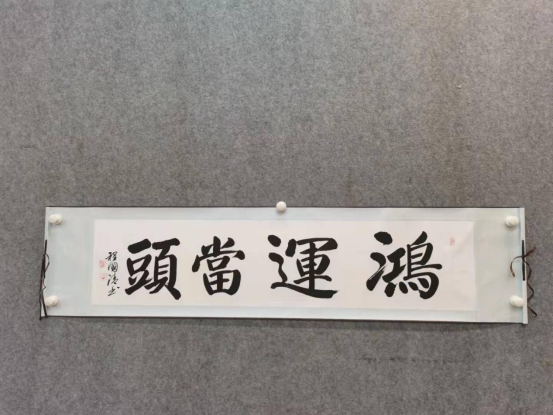 鴻運當頭
程國清书